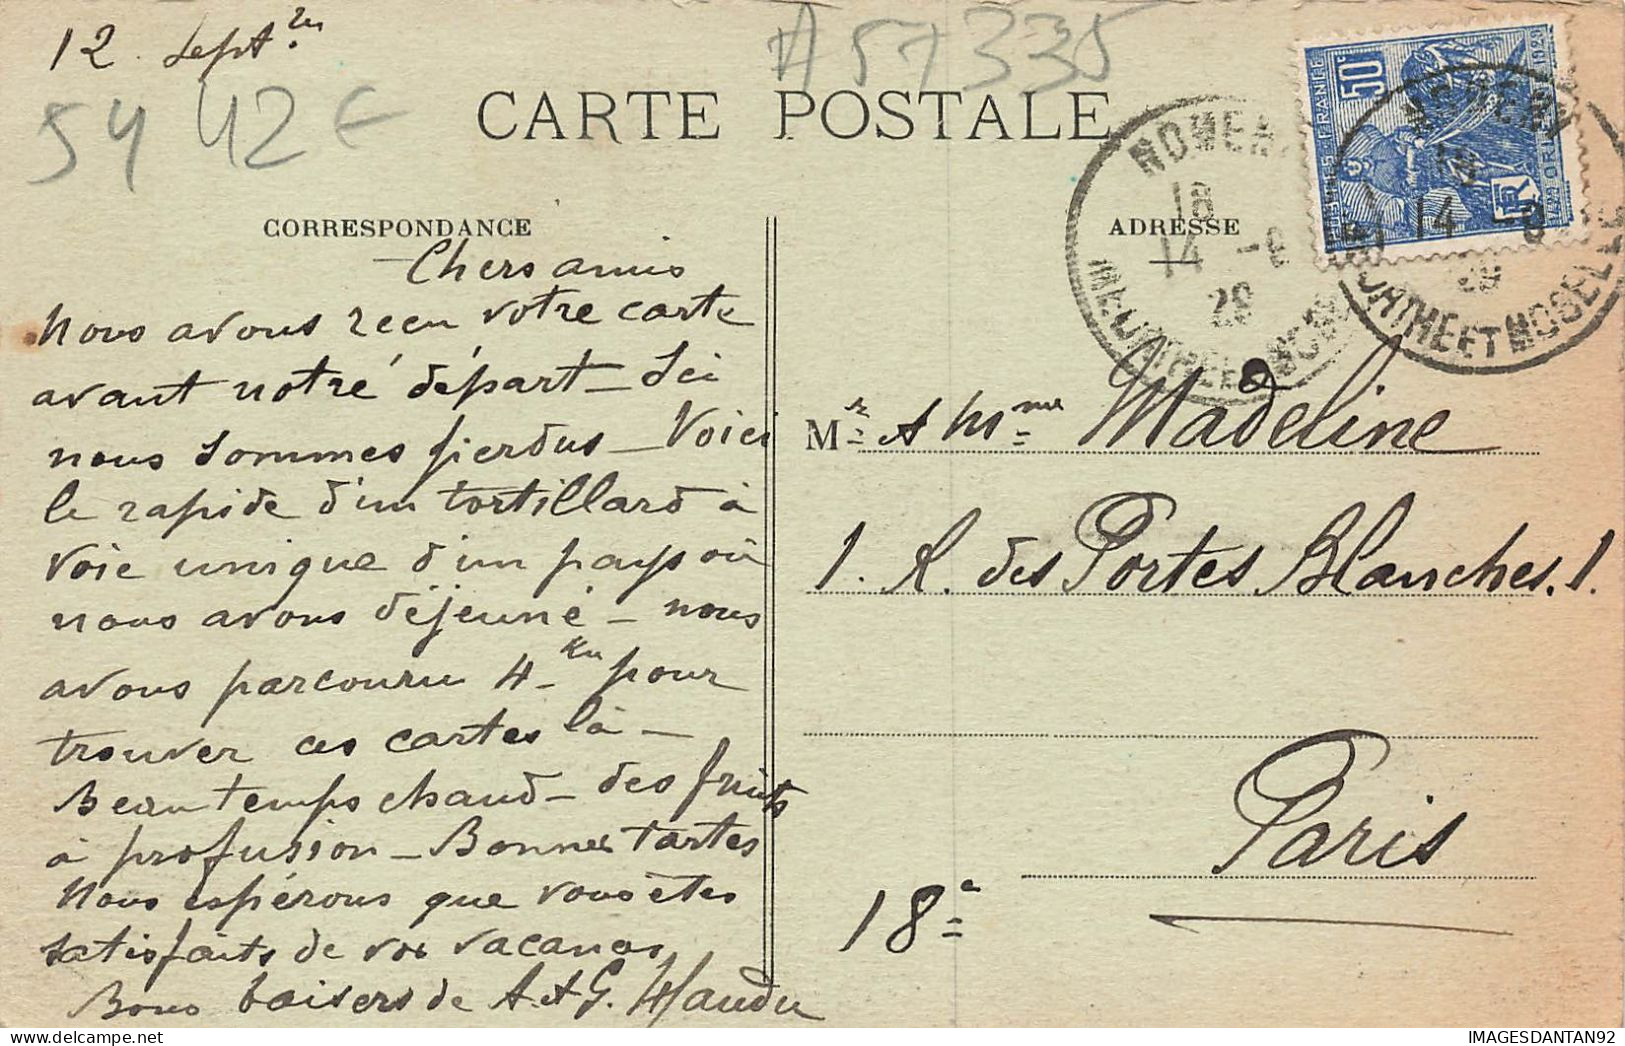 12 Septbre
A57335
54 42 E
CARTE POSTALE
CORRESPONDANCE
ADRESSE
50c
FRANCE
NOMENY
18
14 -9
29
MEURTHE ET MOSELLE
NOMENY
18
14 -9
29
MEURTHE ET MOSELLE
Chers amis
Nous avons reçu votre carte
avant notre départ – Ici
nous sommes perdus – Voici
le rapide d'un tortillard à
voie unique d'un pays où
nous avons déjeuné – nous
avons parcouru 4 km pour
trouver ces cartes là –
Beau temps chaud – des fruits
à profusion – Bonnes tartes
Nous espérons que vous êtes
satisfaits de vos vacances
Bons baisers de A. et G.
Mr et Mme Madeline
1. R. des Portes Blanches. 1.
Paris
18e
IMAGESDANTAN92